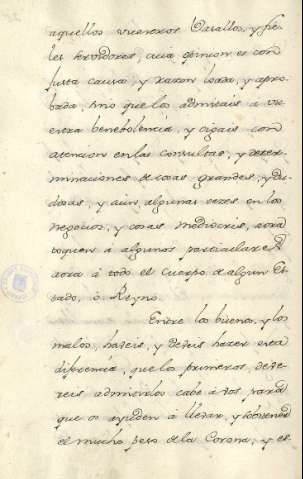 aquellos vuestros Vasallos, y fie-
les servidores, cuia opinion es con
justa causa, y razon loada, y apro-
bada, sino que los admitais à vu-
estra benebolencia, y oigais con
atencion en las consultas, y deter-
minaciones de cosas grandes, y du-
dosas, y aun algunas veces en los
negocios, y cosas mediocris, aora
toquen à algunos particulares,
aora à todo el Cuerpo de algun Es-
tado, ò Reyno.
Entre los buenos, y los
malos, haceis, y debeis hacer esta
diferencia, que los primeros, debe-
reis admitirlos cabe à vos para
que os ayuden à llebar, y
el mucho peso de la Corona, y es-